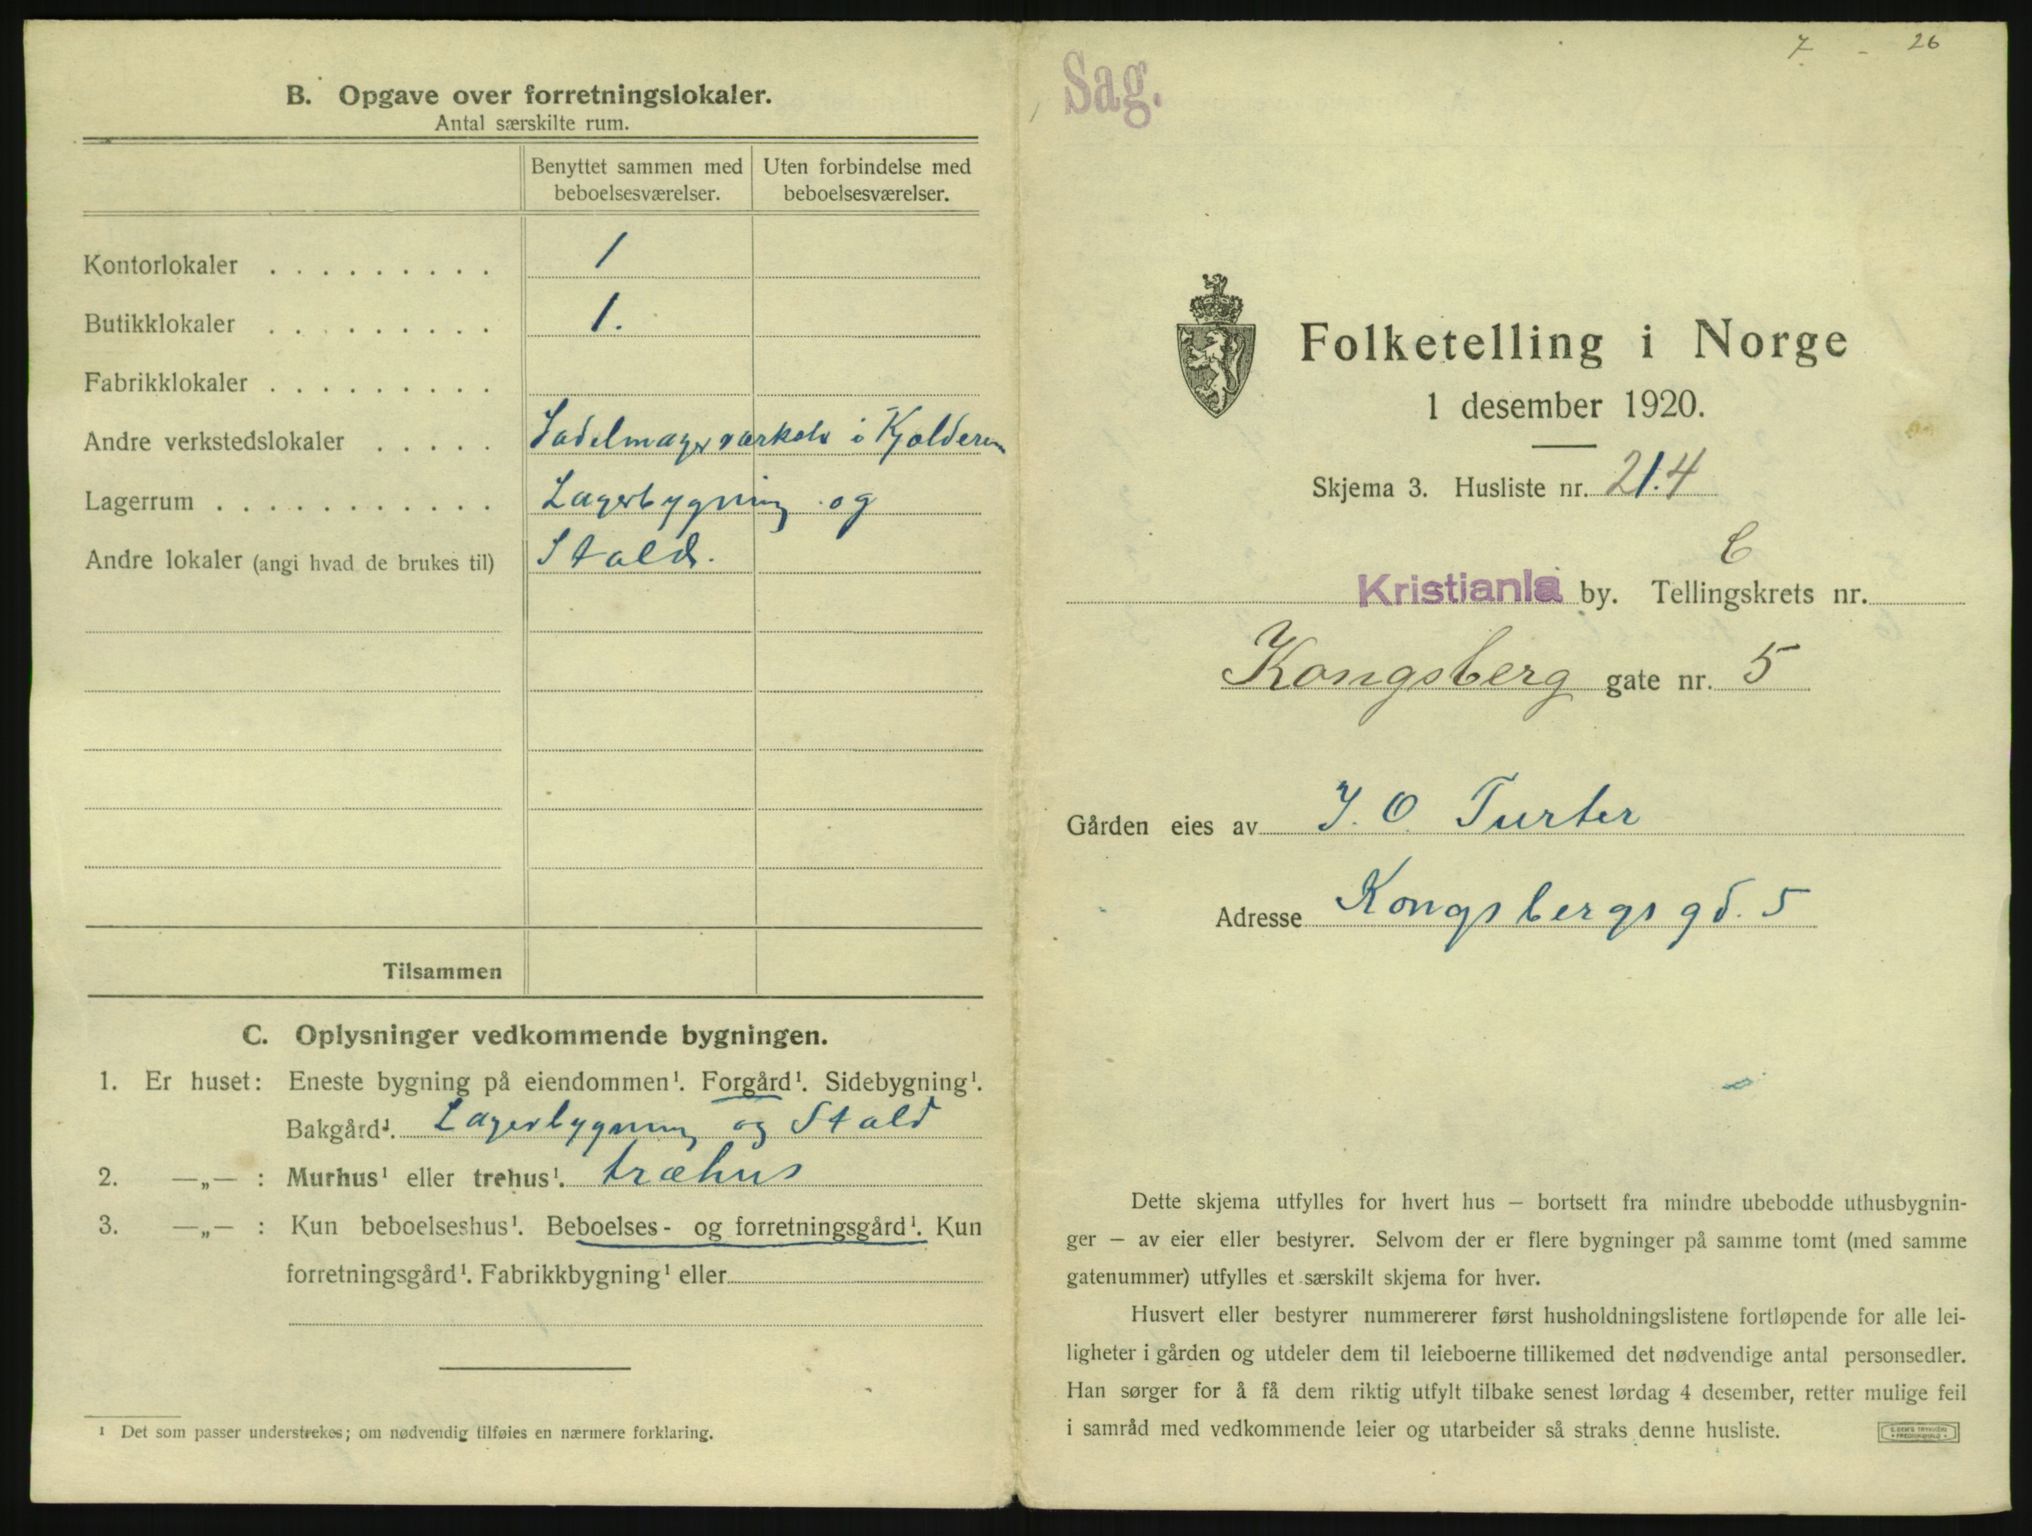 B. Opgave over forretningslokaler.
Antal særskilte rum.
Benyttet sammen med beboelsesværelser.
Uten forbindelse med beboelsesværelser.
Kontorlokaler . . . . . . . . . 1
Butikklokaler . . . . . . . . . 1.
Fabrikklokaler . . . . . . . . .
Andre verkstedslokaler . . . . . Sadelmager værksted i Kjolderen
Lagerrum . . . . . . . . . . . . Lagerbygning og
Andre lokaler (angi hvad de brukes til) Stald.
Tilsammen
C. Oplysninger vedkommende bygningen.
1. Er huset: Eneste bygning på eiendommen¹. Forgård¹. Sidebygning¹.
Bakgård¹. Lagerbygning og Stald
2. —„— : Murhus¹ eller trehus¹. træhus
3. —„— : Kun beboelseshus¹. Beboelses- og forretningsgård¹. Kun
forretningsgård¹. Fabrikkbygning¹ eller
¹ Det som passer understrekes; om nødvendig tilføies en nærmere forklaring.
7 - 26
Sag.
Folketelling i Norge
1 desember 1920.
Skjema 3. Husliste nr. 214
C
Kristiania by. Tellingskrets nr.
Kongsberg gate nr. 5
Gården eies av J. O. Turter
Adresse Kongsbergsgd. 5
Dette skjema utfylles for hvert hus — bortsett fra mindre ubebodde uthusbygnin-
ger — av eier eller bestyrer. Selvom der er flere bygninger på samme tomt (med samme
gatenummer) utfylles et særskilt skjema for hver.
Husvert eller bestyrer nummererer først husholdningslistene fortløpende for alle lei-
ligheter i gården og utdeler dem til leieboerne tillikemed det nødvendige antal personsedler.
Han sørger for å få dem riktig utfylt tilbake senest lørdag 4 desember, retter mulige feil
i samråd med vedkommende leier og utarbeider så straks denne husliste.